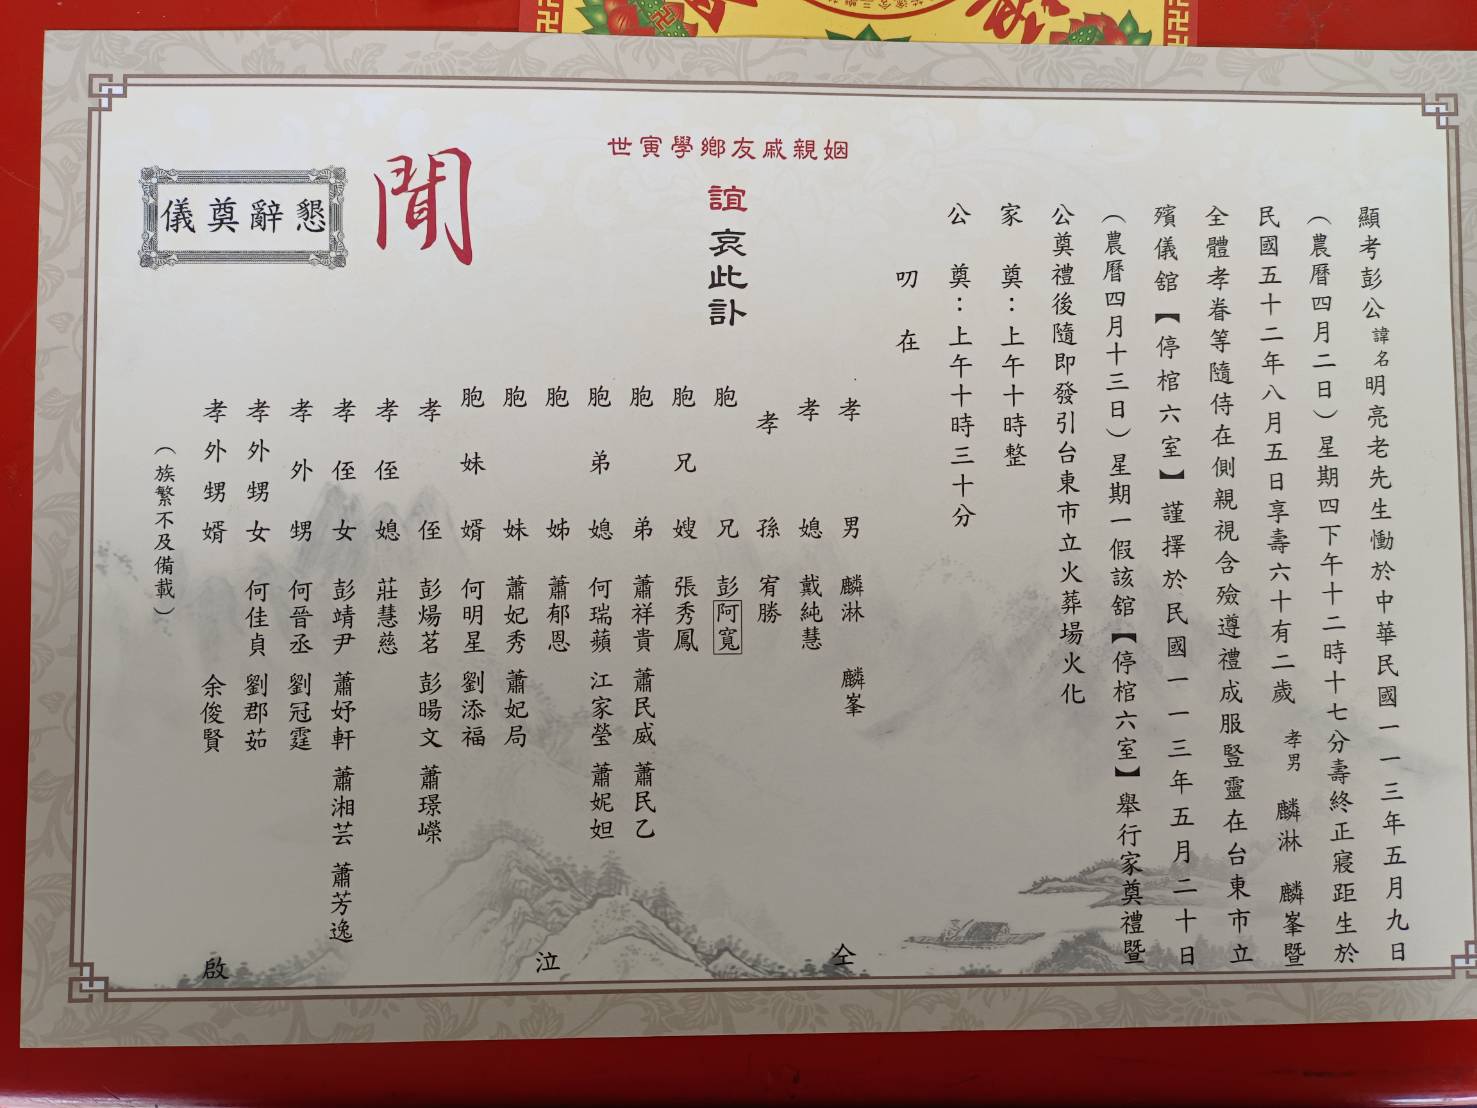 顯考彭公諱名明亮老先生慟於中華民國一一三年五月九日
（農曆四月二日）星期四下午十二時十七分壽終正寢距生於
民國五十二年八月五日享壽六十有二歲 孝男 麟淋 麟峯暨
全體孝眷等隨侍在側親視含殮遵禮成服豎靈在台東市立
殯儀舘【停棺六室】謹擇於民國一一三年五月二十日
（農曆四月十三日）星期一假該舘【停棺六室】舉行家奠禮暨
公奠禮後隨即發引台東市立火葬場火化
家 奠：上午十時整
公 奠：上午十時三十分
叨 在
姻親戚友鄉學寅世
誼哀此訃
聞
懇辭奠儀
孝男 麟淋 麟峯
孝媳 戴純慧
孝孫 宥勝
胞兄 彭阿寬
胞兄嫂 張秀鳳
胞弟 蕭祥貴 蕭民威 蕭民乙
胞弟媳 何瑞蘋 江家瑩 蕭妮妲
胞姊 蕭郁恩
胞妹 蕭妃秀 蕭妃局
胞妹婿 何明星 劉添福
孝侄 彭煬茗 彭暘文 蕭璟嶸
孝侄媳 莊慧慈
孝侄女 彭靖尹 蕭妤軒 蕭湘芸 蕭芳逸
孝外甥 何晉丞 劉冠霆
孝外甥女 何佳貞 劉郡茹
孝外甥婿 余俊賢
（族繁不及備載）
仝 泣 啟